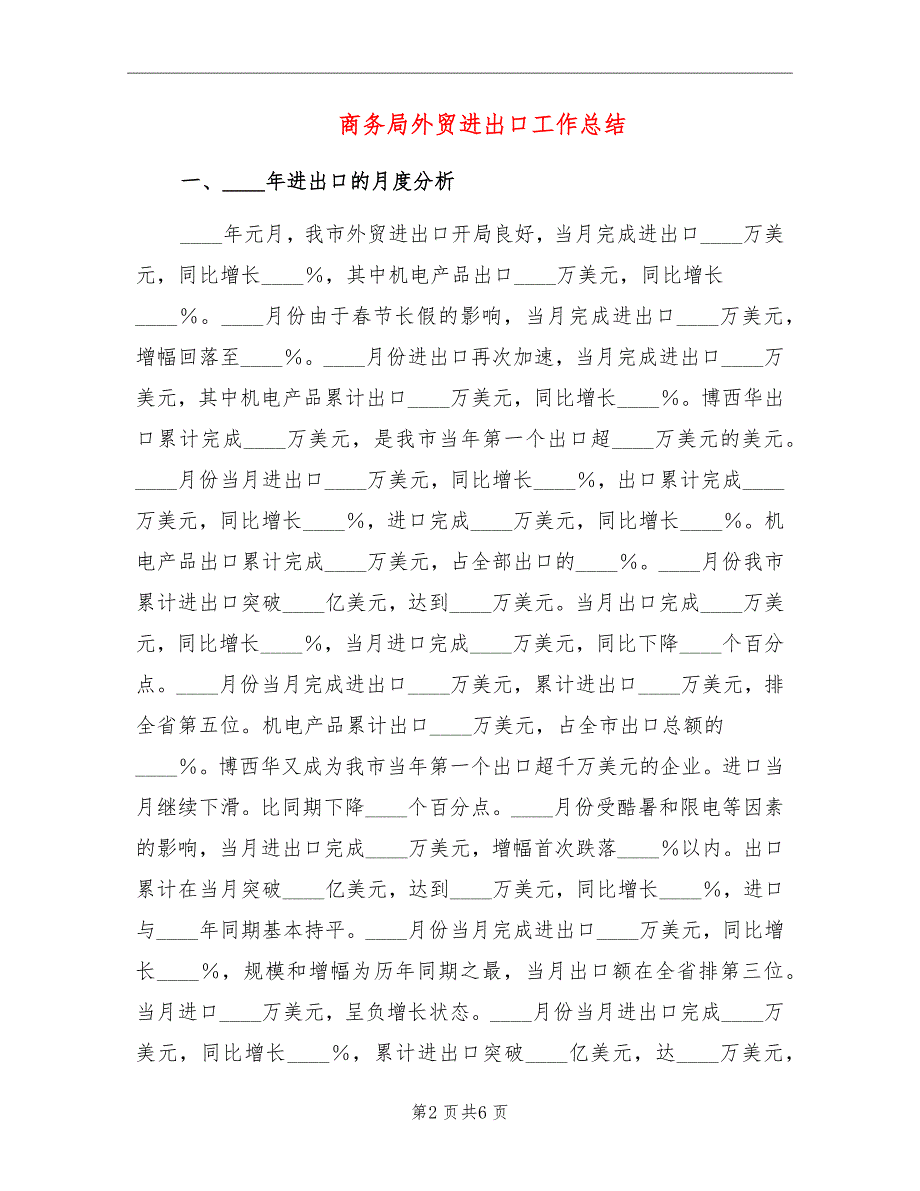 商务局外贸进出口工作总结
一、____年进出口的月度分析
____年元月，我市外贸进出口开局良好，当月完成进出口____万美
元，同比增长____%，其中机电产品出口____万美元，同比增长
____%。____月份由于春节长假的影响，当月完成进出口____万美元，
增幅回落至____%。____月份进出口再次加速，当月完成进出口____万
美元，其中机电产品累计出口____万美元，同比增长____%。博西华出
口累计完成____万美元，是我市当年第一个出口超____万美元的美元。
____月份当月进出口____万美元，同比增长____%，出口累计完成____
万美元，同比增长____%，进口完成____万美元，同比增长____%。机
电产品出口累计完成____万美元，占全部出口的____%。____月份我市
累计进出口突破____亿美元，达到____万美元。当月出口完成____万美
元，同比增长____%，当月进口完成____万美元，同比下降____个百分
点。____月份当月完成进出口____万美元，累计进出口____万美元，排
全省第五位。机电产品累计出口____万美元，占全市出口总额的
____%。博西华又成为我市当年第一个出口超千万美元的企业。进口当
月继续下滑。比同期下降____个百分点。____月份受酷暑和限电等因素
的影响，当月进出口完成____万美元，增幅首次跌落____%以内。出口
累计在当月突破____亿美元，达到____万美元，同比增长____%，进口
与____年同期基本持平。____月份当月完成进出口____万美元，同比增
长____%，规模和增幅为历年同期之最，当月出口额在全省排第三位。
当月进口____万美元，呈负增长状态。____月份当月进出口完成____万
美元，同比增长____%，累计进出口突破____亿美元，达____万美元，
第2 页共6 页